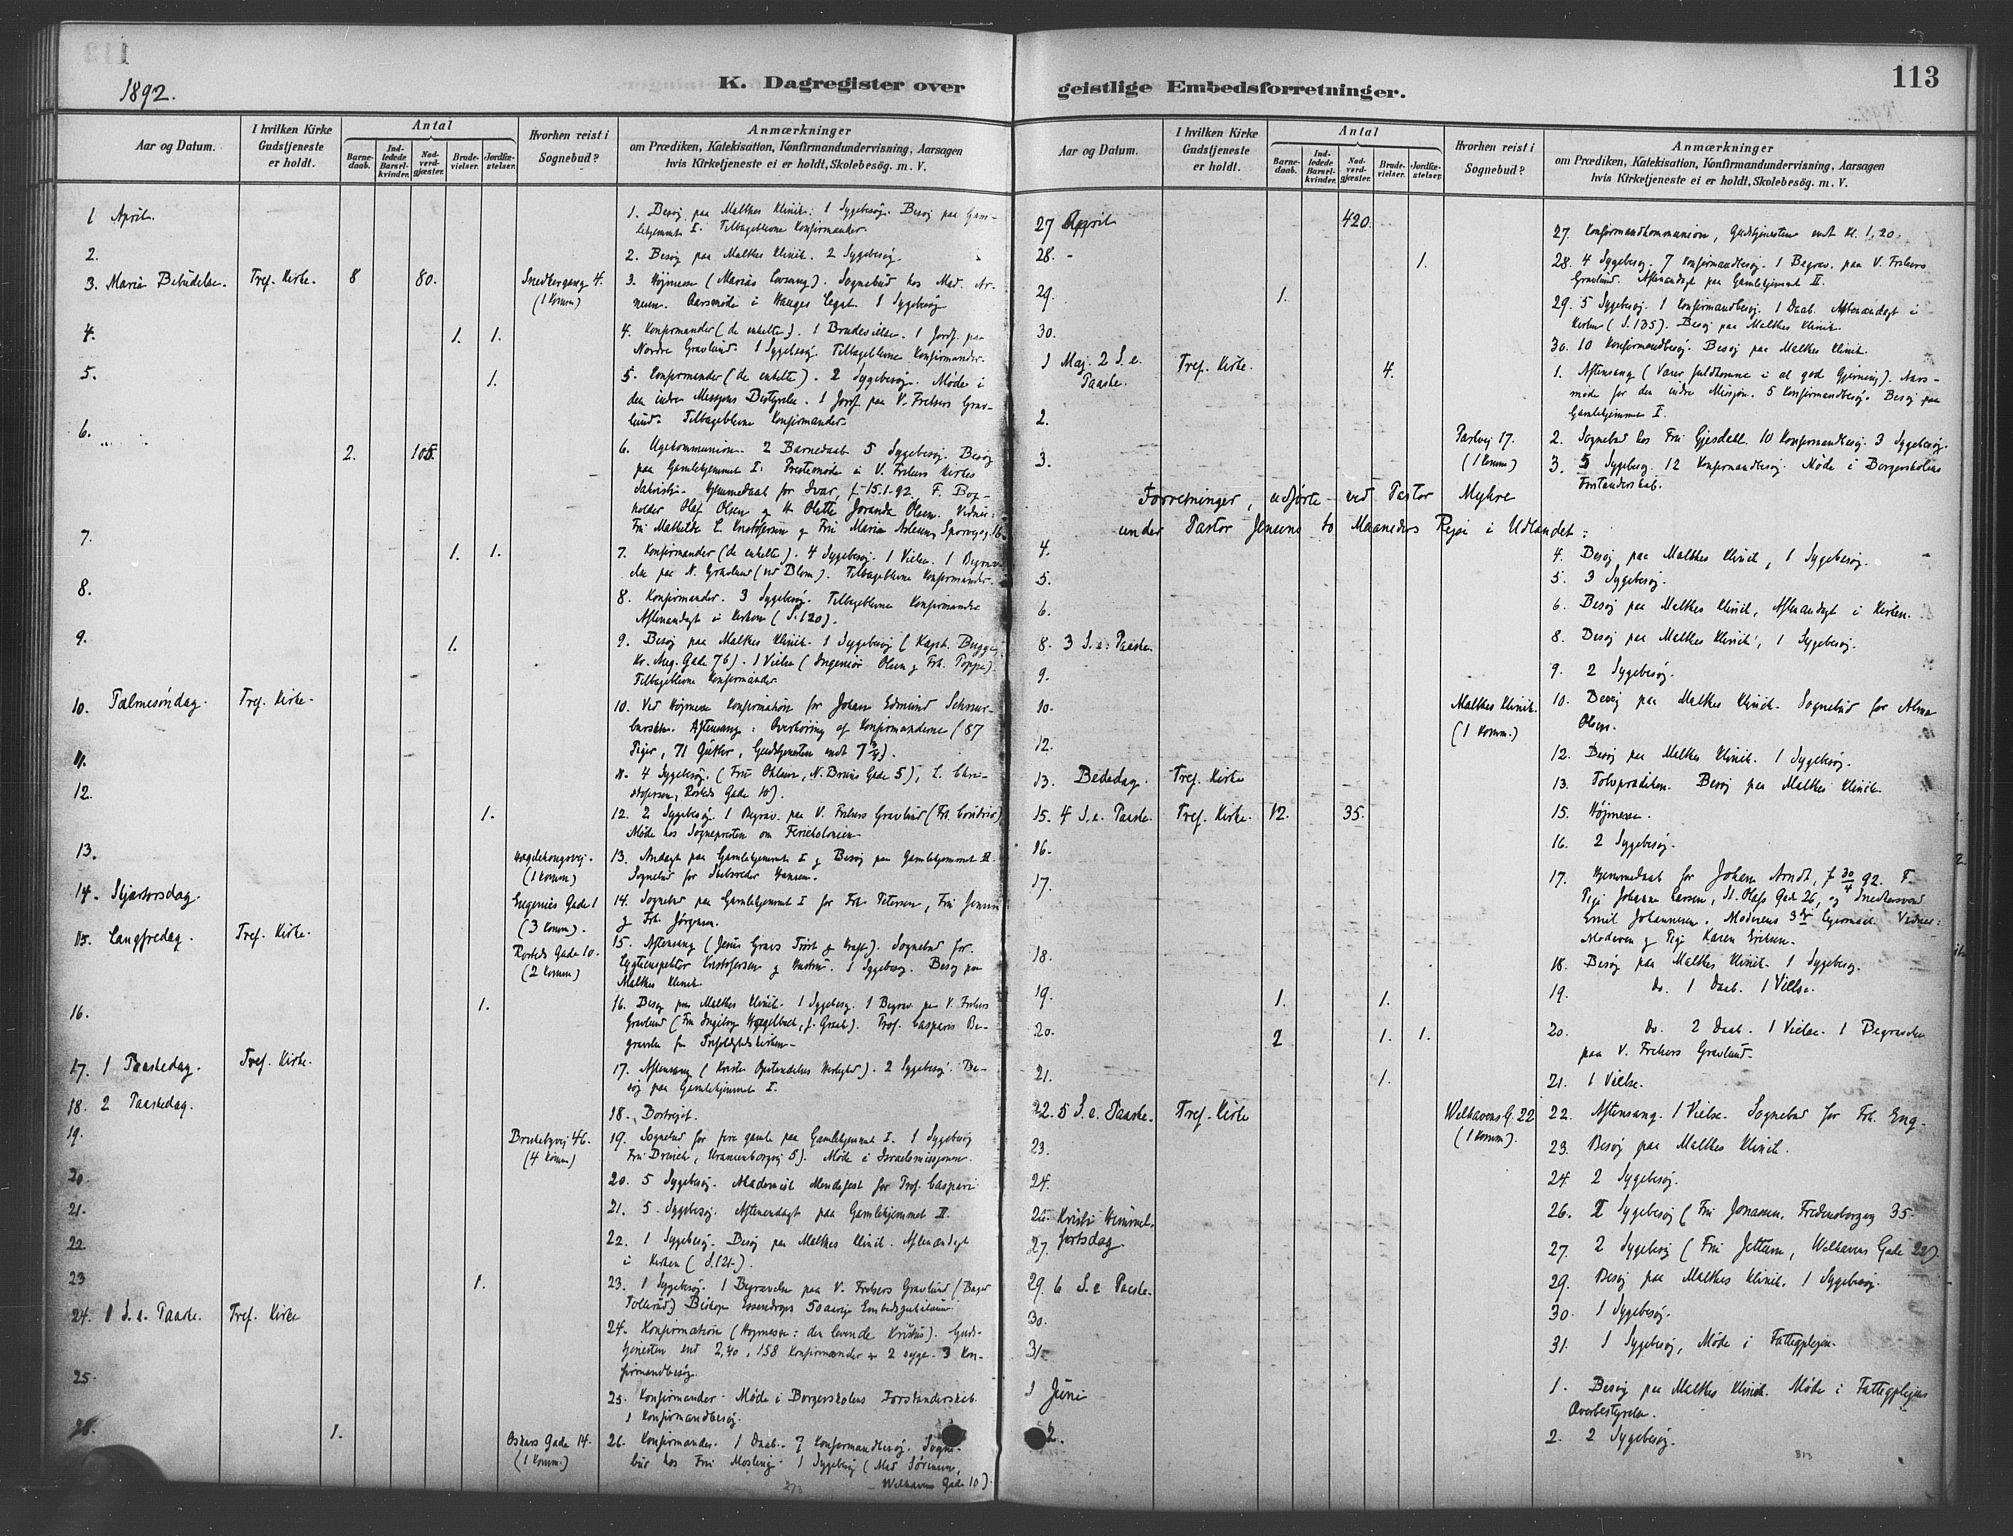 1892.
K. Dagregister over
Aar og Datum.
I hvilken Kirke Gudstjeneste er holdt.
Antal
Barnedaab.
Indledede Barselkvinder.
Nadverdgjæster.
Brudevielser.
Jordfæstelser.
Hvorhen reist i Sognebud?
Anmærkninger
om Prædiken, Katekisation, Konfirmandundervisning, Aarsagen
hvis Kirketjeneste ei er holdt, Skolebesög. m. V.
1 April.
1. Besøg paa Malthes Klinik. 1 Sygebesøg. Besøg paa Gam-
lehjemmet I. Tilbageblevne Konfirmander.
2.
2. Besøg paa Malthes Klinik. 2 Sygebesøg.
3. Mariæ Bebudelse. Tref. Kirke. 8 80. Snedkergang 4.
(1 Komm)
3. Højmesse (Marias Lovsang). Sognebud hos Mad. Ar-
nesen. Aarsmøde i Hauges Legat. 1 Sygebesøg
4. 1. 1.
4. Konfirmander (de enkelte). 1 Brudevielse. 1 Jordf. paa
Nordre Gravlund. 1 Sygebesøg. Tilbageblevne Konfirmander.
5. 1.
5. Konfirmander (de enkelte). 2 Sygebesøg. Møde i
den indre Missions Bestyrelse. 1 Jordf. paa V. Frelsers Grav-
lund. Tilbageblevne Konfirmander.
6. 2. 105.
6. Ugekommunion. 2 Barnedaab. 5 Sygebesøg. Besøg
paa Gamlehjemmet I. Prestemøde i V. Frelsers Kirkes
Sakristi. Hjemmedaab for Ivar, f. 15.1.92. F. Bog-
holder Olaf Olsen og H. Olette Jorande Olsen. Vidner:
Fru Mathilde L. Kristofersen og Fru Maria Aslesen, 16.
7. 1. 1.
7. Konfirmander (de enkelte). 4 Sygebesøg. 1 Vielse. 1 Begrav-
else paa N. Gravlund (ved Blom). Tilbageblevne Konfirmander.
8.
8. Konfirmander. 3 Sygebesøg. Tilbageblevne Konfirmander
Aftenandagt i Kirken (S. 120).
9. 1.
9. Besøg paa Malthes Klinik. 1 Sygebesøg (Kapt. Bugge,
Kr. Aug. Gade 76). 1 Vielse (Ingeniør Olsen og Frk. Poppe).
Tilbageblevne Konfirmander
10. Palmesøndag. Tref. Kirke.
10. Ved Højmesse Konfirmation for Johan Edmund
Aftensang: Overhøring af Konfirmanderne (87
Piger, 71 Gutter, Gudstjenesten endt 7 3/4).
11.
11. 4 Sygebesøg. (Fru Ohlsen, N. Bruns Gade 5), L. Chri-
stofersen, Rosteds Gade 10).
12. 1.
12. 2 Sygebesøg. 1 Begrav. paa V. Frelsers Gravlund (Frk.
Møde hos Sognepresten om Feriekolonien
13. (1 Komm)
13. Andagt paa Gamlehjemmet I og Besøg paa Gamlehjemmet II.
Sognebud for Skibsreder Hansen.
14. Skjærtorsdag. Eugenies Gade 1
(3 Komm).
14. Sognebud paa Gamlehjemmet I for Frk. Petersen, Fru Jensen
og Frk. Jørgensen.
15. Langfredag. Tref. Kirke. Rosteds Gade 10.
(2 Komm)
15. Aftensang (Jesu Gravs Trøst og Kraft). Sognebud for
Kristofersen og Hustru. 1 Sygebesøg. Besøg paa
Malthes Klinik
16. 1.
16. Besøg paa Malthes Klinik. 1 Sygebesøg. 1 Begrav. paa V. Frelsers
Gravlund (Fru Ingeborg f. Graah). Prof. Casparis Be-
gravelse fra Trefoldighedskirken.
17. 1 Paaskedag. Tref. Kirke.
17. Aftensang (Kristi Opstandelses Herlighed). 2 Sygebesøg. Be-
søg paa Gamlehjemmet I.
18. 2 Paaskedag.
18. Bortrejst.
19. (4 Komm)
19. Sognebud for fire gamle paa Gamlehjemmet I. 1 Sygebesøg
Uranienborgvej 5). Møde i Israelsmissionen.
20.
20. 5 Sygebesøg. Akademisk Mindefest for Prof. Caspari
21.
21. 5 Sygebesøg. Aftenandagt paa Gamlehjemmet II.
22
22. 1 Sygebesøg. Besøg paa Malthes Klinik. Aftenandagt
i Kirken (S. 121.).
23 1.
23. 1 Sygebesøg. 1 Begravelse paa V. Frelsers Gravlund (Bager
Tollerud) Biskop Essendrops 50aarige Embedsjubilæum
24. 1 S. e. Paaske. Tref. Kirke
24. Konfirmation (Højmesse: den levende Kristus). Guds-
tjenesten endt 2,40, 158 Konfirmander 2 syge. 3 Kon-
firmandbesøg.
25.
25. Konfirmander. Møde i Borgerskolens Forstanderskab
1 Konfirmandbesøg.
26. 1. Oskars Gade 14.
(1 Komm)
26. Konfirmander. 1 Daab. 7 Konfirmandbesøg. Sogne-
bud hos Fru 1 Sygebesøg (Mad. Sørensen,
Welhavens Gade 10)
geistlige Embedsforretninger.
113
Aar og Datum.
I hvilken Kirke Gudstjeneste er holdt.
Antal
Barnedaab.
Indledede Barselkvinder.
Nadverdgjæster.
Brudevielser.
Jordfæstelser.
Hvorhen reist i Sognebud?
Anmærkninger
om Prædiken, Katekisation, Konfirmandundervisning, Aarsagen
hvis Kirketjeneste ei er holdt, Skolebesög. m. V.
27 April 420.
27. Konfirmandkommunion, Gudstjenesten endt kl. 1,20.
28. - 1.
28. 4 Sygebesøg. 7 Konfirmandbesøg. 1 Begrav. paa V. Frelsers
Gravlund. Aftenandagt paa Gamlehjemmet II.
29. 1.
29. 5 Sygebesøg. 1 Konfirmandbesøg. 1 Daab. Aftenandagt i
Kirken (S. 135). Besøg paa Malthes Klinik.
30.
30. 10 Konfirmandbesøg. Besøg paa Malthes Klinik.
1 Maj. 2 S. e. Paaske. Tref. Kirke. 4.
1. Aftensang (Værer fuldkomne i al god Gjerning). Aars-
møde for den indre Mission. 5 Konfirmandbesøg. Besøg paa
Gamlehjemmet I.
2. Parkvej 17.
(1 Komm)
2. Sognebud hos Fru Gjesdahl. 10 Konfirmandbesøg. 3 Sygebesøg.
3.
3. 5 Sygebesøg. 12 Konfirmandbesøg. Møde i Borgerskolens
Forstanderskab.
Forretninger, udførte ved Pastor Myhre
under Pastor Jensens to Maaneders Rejse i Udlandet:
4.
4. Besøg paa Malthes Klinik, 1 Sygebesøg.
5.
5. 3 Sygebesøg.
6.
6. Besøg paa Malthes Klinik, Aftenandagt i Kirken.
8. 3 S. e. Paaske.
8. Besøg paa Malthes Klinik, 1 Sygebesøg.
9.
9. 2 Sygebesøg.
10. Malthes Klinik.
(1 Komm.)
10. Besøg paa Malthes Klinik. Sognebud for Alma
Olsen.
12.
12. Besøg paa Malthes Klinik. 1 Sygebesøg.
13. Bededag. Tref. Kirke
13. Tolvprædiken. Besøg paa Malthes Klinik.
15. 4 S. e. Paaske. Tref. Kirke. 12. 35.
15. Højmesse.
16.
16. 2 Sygebesøg.
17.
17. Hjemmedaab for Johan Arndt, f 30/4 92. F.
Pige Johanne Larsen, St. Olafs Gade 26, og Snedkersvend
Emil Johannesen. Moderens 3die Lejermaal. Vidner:
Moderen og Pige Karen Eriksen.
18.
18. Besøg paa Malthes Klinik. 1 Sygebesøg.
19. 1. 1.
19. do. 1 Daab. 1 Vielse.
20. 2 1. 1.
20. do. 2 Daab. 1 Vielse. 1 Begravelse
paa V. Frelsers Gravlund.
21. 1.
21. 1 Vielse.
22. 5 S. e. Paaske. Tref. Kirke Welhavens G. 22
(1 Komm).
22. Aftensang. 1 Vielse. Sognebud for Frk. Eng.
23.
23. Besøg paa Malthes Klinik.
24.
24 2 Sygebesøg.
26. Kristi Himmel-
fartsdag.
26. 2 Sygebesøg (Fru Johansen, Fredensborgveg 35.
27.
27. 2 Sygebesøg (Fru Welhavens Gade 22).
29. 6 S. e Paaske.
29. Besøg paa Malthes Klinik. 1 Sygebesøg.
30.
30. 1 Sygebesøg.
31.
31. 1 Sygebesøg, Møde i Fattigplejen.
1 Juni
1. Besøg paa Malthes Klinik. Møde i Fattigplejens
Overbestyrelse.
2.
2. 2 Sygebesøg.